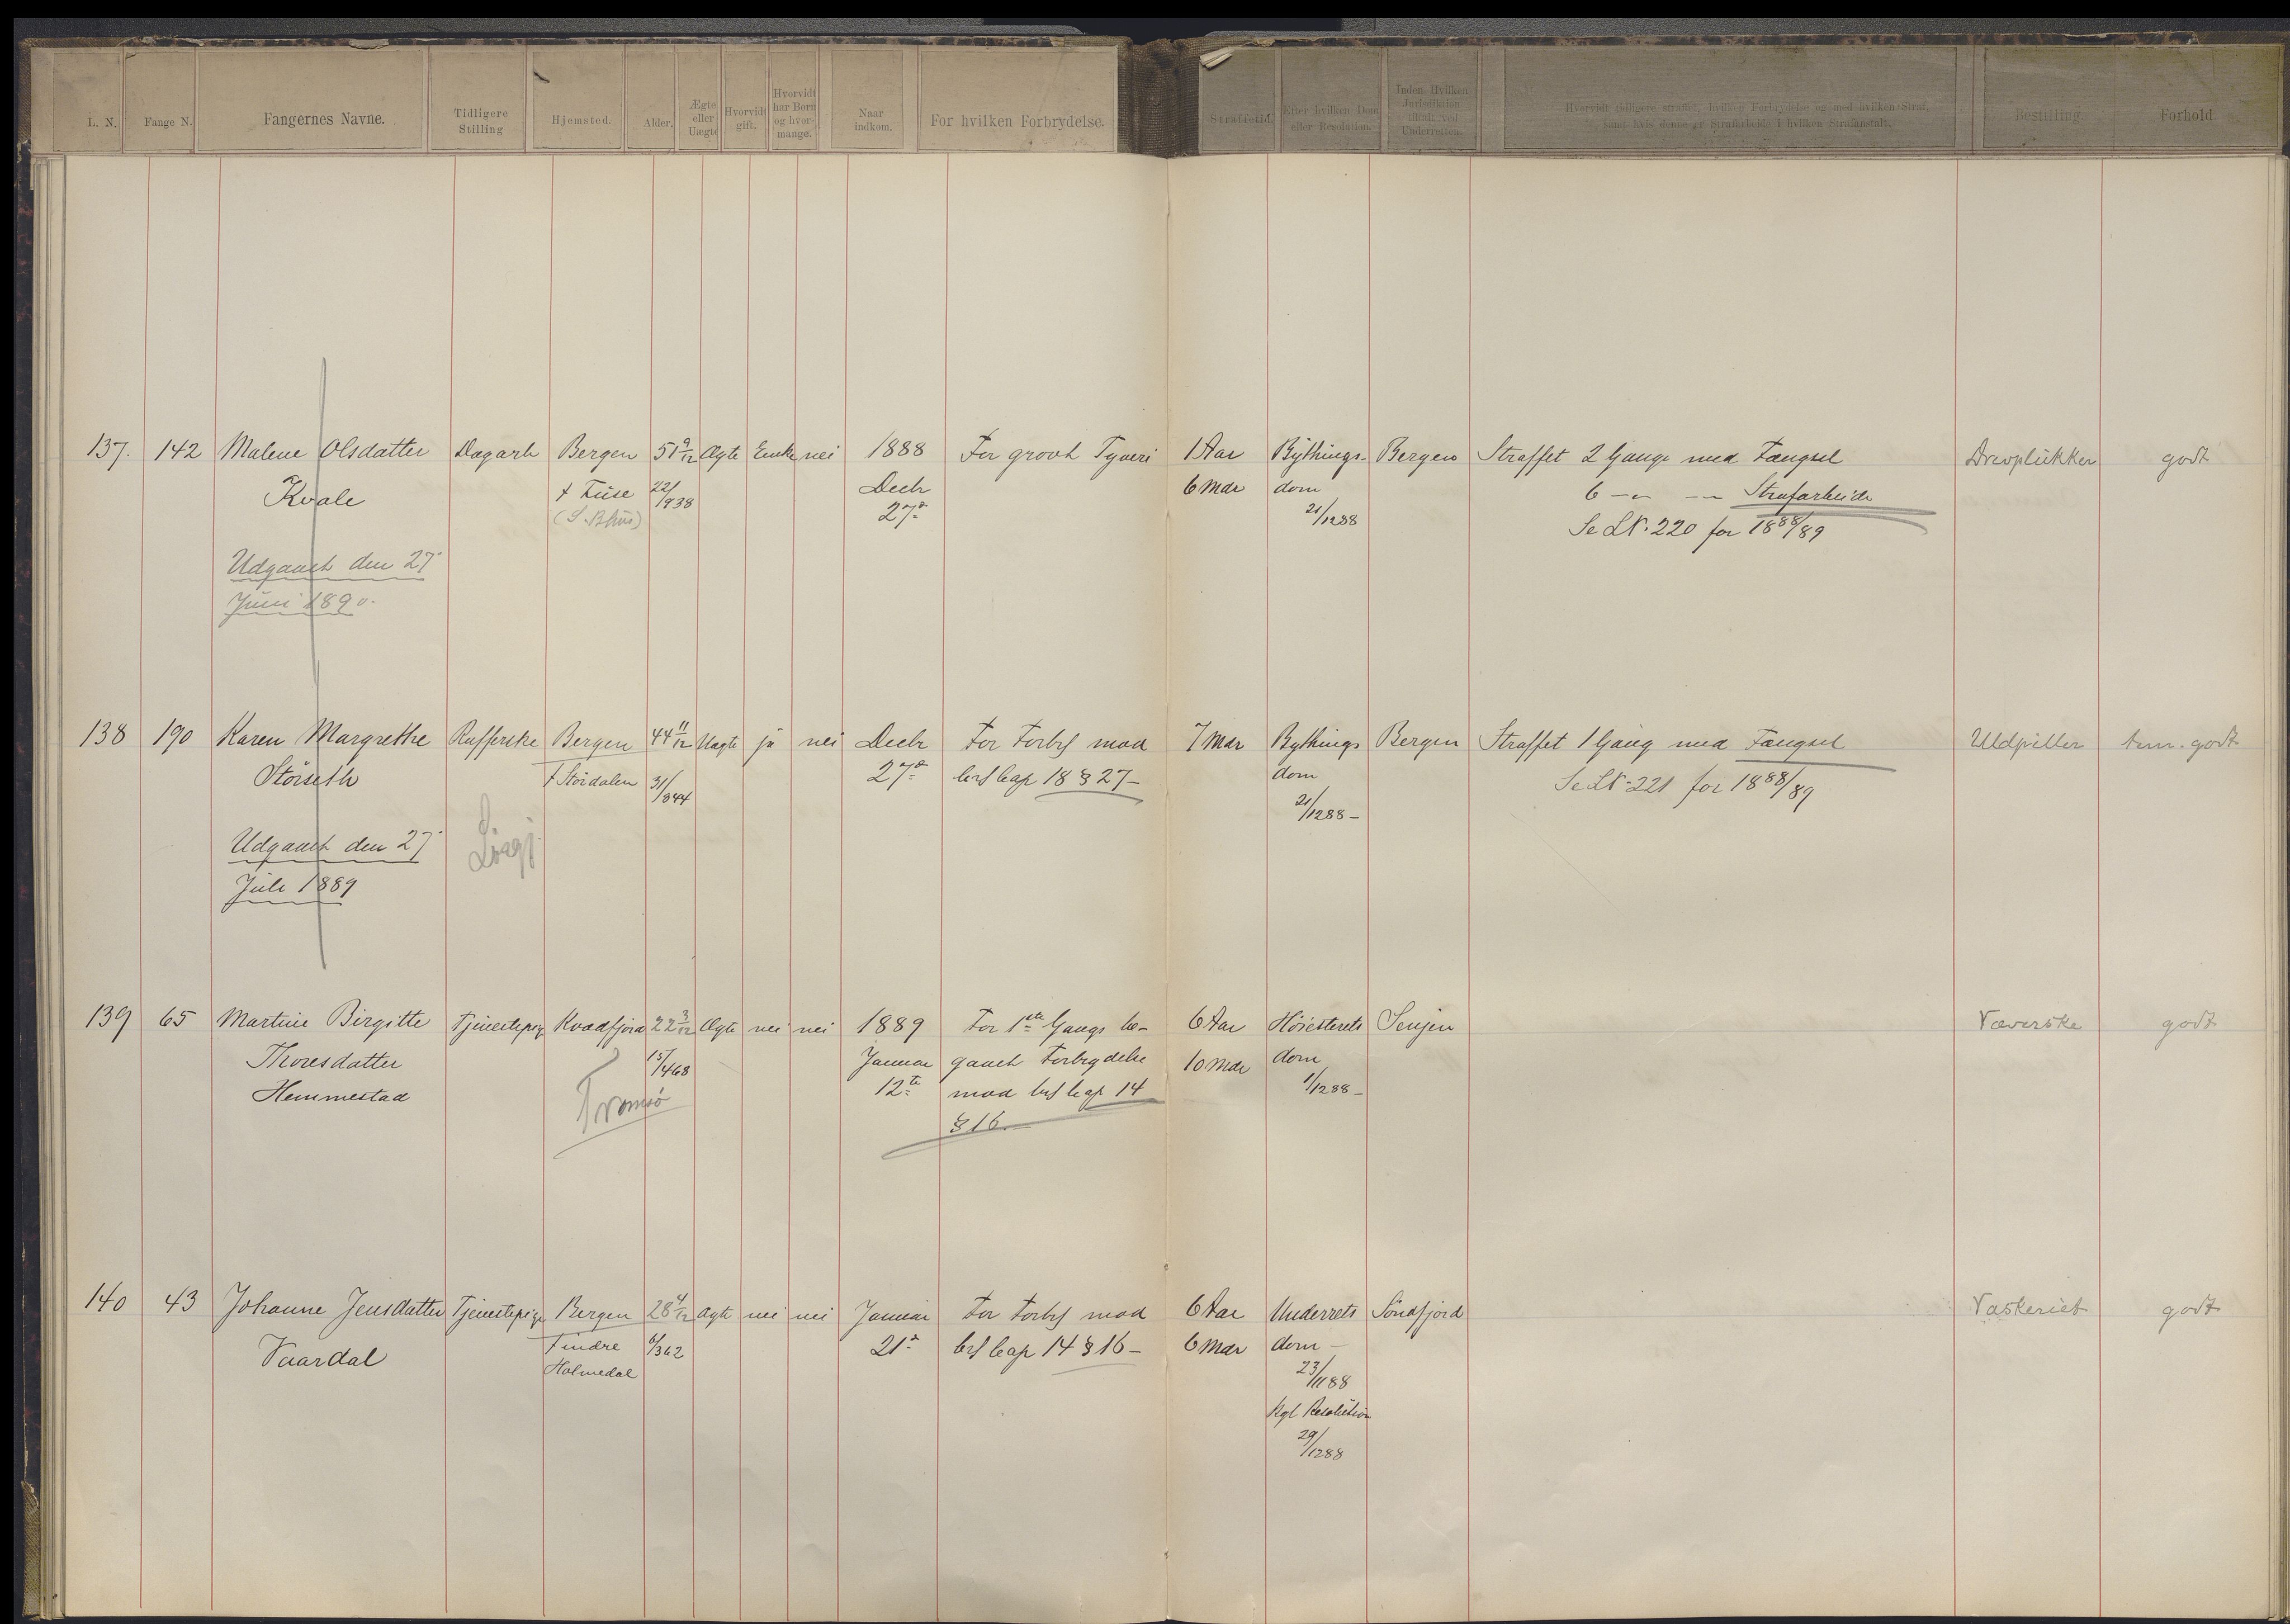 L. N.
Fange N.
Fangernes Navne.
Tidligere
Stilling
Hjemsted.
Alder.
Ægte
eller
Uægte
Hvorvidt
gift.
Hvorvidt
har Børn
og hvor-
mange.
Naar
indkom.
For hvilken Forbrydelse.
Straffetid.
Efter hvilken Dom
eller Resolution.
Inden Hvilken
Jurisdiktion
tiltalt ved
Underretten.
Hvorvidt tidligere straffet, hvilken Forbrydelse og med hvilken Straf,
samt hvis denne er Strafarbeide i hvilken Strafanstalt.
Bestilling.
Forhold.
137. 142 Malene Olsdatter Dagarb Bergen 51 9/12 Ægte Enke nei 1888 For grovt Tyveri 1 Aar Bythings- Bergen Straffet 2 Gange med Fængsel Drevplukker godt
Kvale f Fuse 22/938 Decbr 6 Mdr dom 6 -"- -"- Strafarbeide
(S. Bhus) 27de 21/1288 Se LN. 220 for 1888/89
Udgaaet den 27
Juni 1890.
138 190 Karen Margrethe Bergen 44 11/12 Uægte ja nei Decbr For Forbr mod 7 Mdr Bythings Bergen Straffet 1 Gang med Fængsel Uldpiller tem. godt
Störseth f Stördalen 31/844 27de krl Cap 18 § 27 - dom Se LN. 221 for 1888/89
21/1288 -
Udgaaet den 27
Juli 1889
139 65 Martine Birgitte Tjenestepige Kvædfjord 22 3/12 Ægte nei nei 1889 For 1ste Gangs be- 6 Aar Höiesterets Senjen Væverske godt
Thoresdatter 15/468 Januar gaaet Forbrydelse 10 Mdr dom
Hemmestad Tromsö 12te mod krl Cap 14 1/1288 -
§ 16.
140 43 Johanne Jensdatter Tjenestepige Bergen 28 4/12 Ægte nei nei Januar For Forbr mod 6 Aar Underrets Söndfjord Vaskeriet godt
Vaardal f indre 6/362 21de krl Cap 14 § 16 - 6 Mdr dom -
Holmedal 23/1188
Kgl Resolution
29/1288